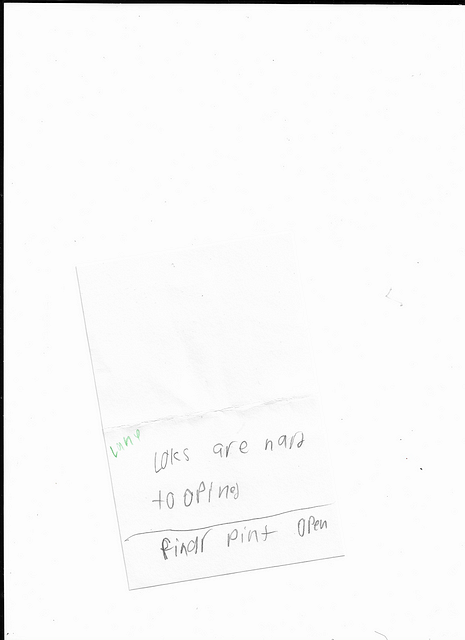 Loks are hard
to oping
finar pint open